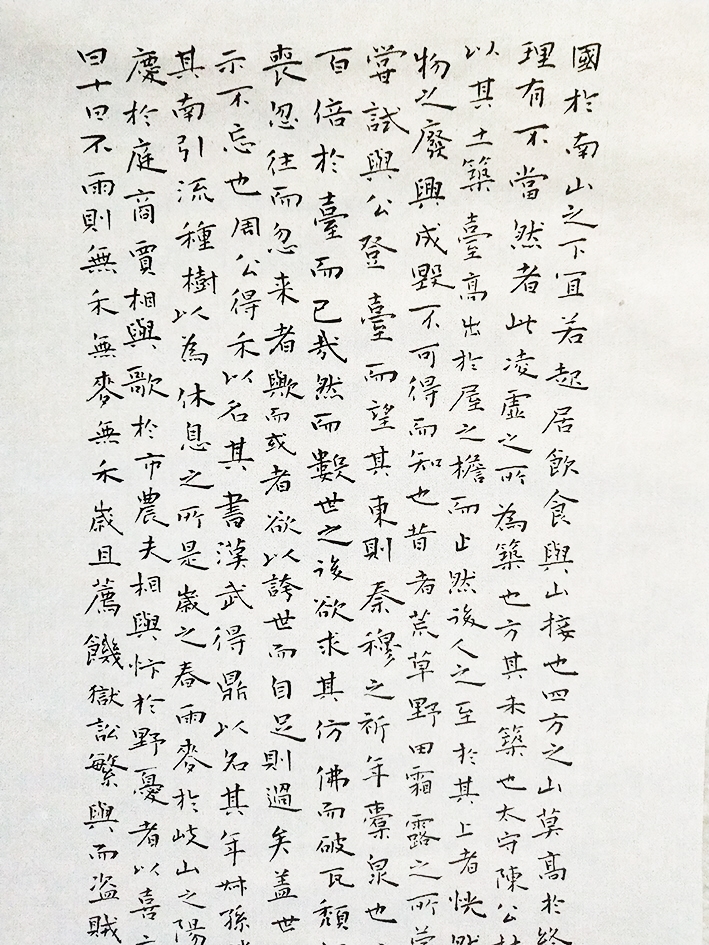 國於南山之下宜若起居飲食與山接也四方之山莫高於終
理有不當然者此凌虛之所為築也方其未築也太守陳公杖
以其土築臺高出於屋之檐而止然後人之至於其上者恍然
物之廢興成毀不可得而知也昔者荒草野田霜露之所蒙
嘗試與公登臺而望其東則秦穆之祈年橐泉也
百倍於臺而已哉然而數世之後欲求其仿佛而破瓦頹
喪忽往而忽来者歟而或者欲以誇世而自足則過矣盖世
示不忘也周公得禾以名其書漢武得鼎以名其年叔孫
其南引流種樹以為休息之所是歲之春雨麥於岐山之陽
慶於庭商賈相與歌於市農夫相與忭於野憂者以喜
曰十日不雨則無禾無麥無禾歲且薦饑獄訟繁興而盗賊